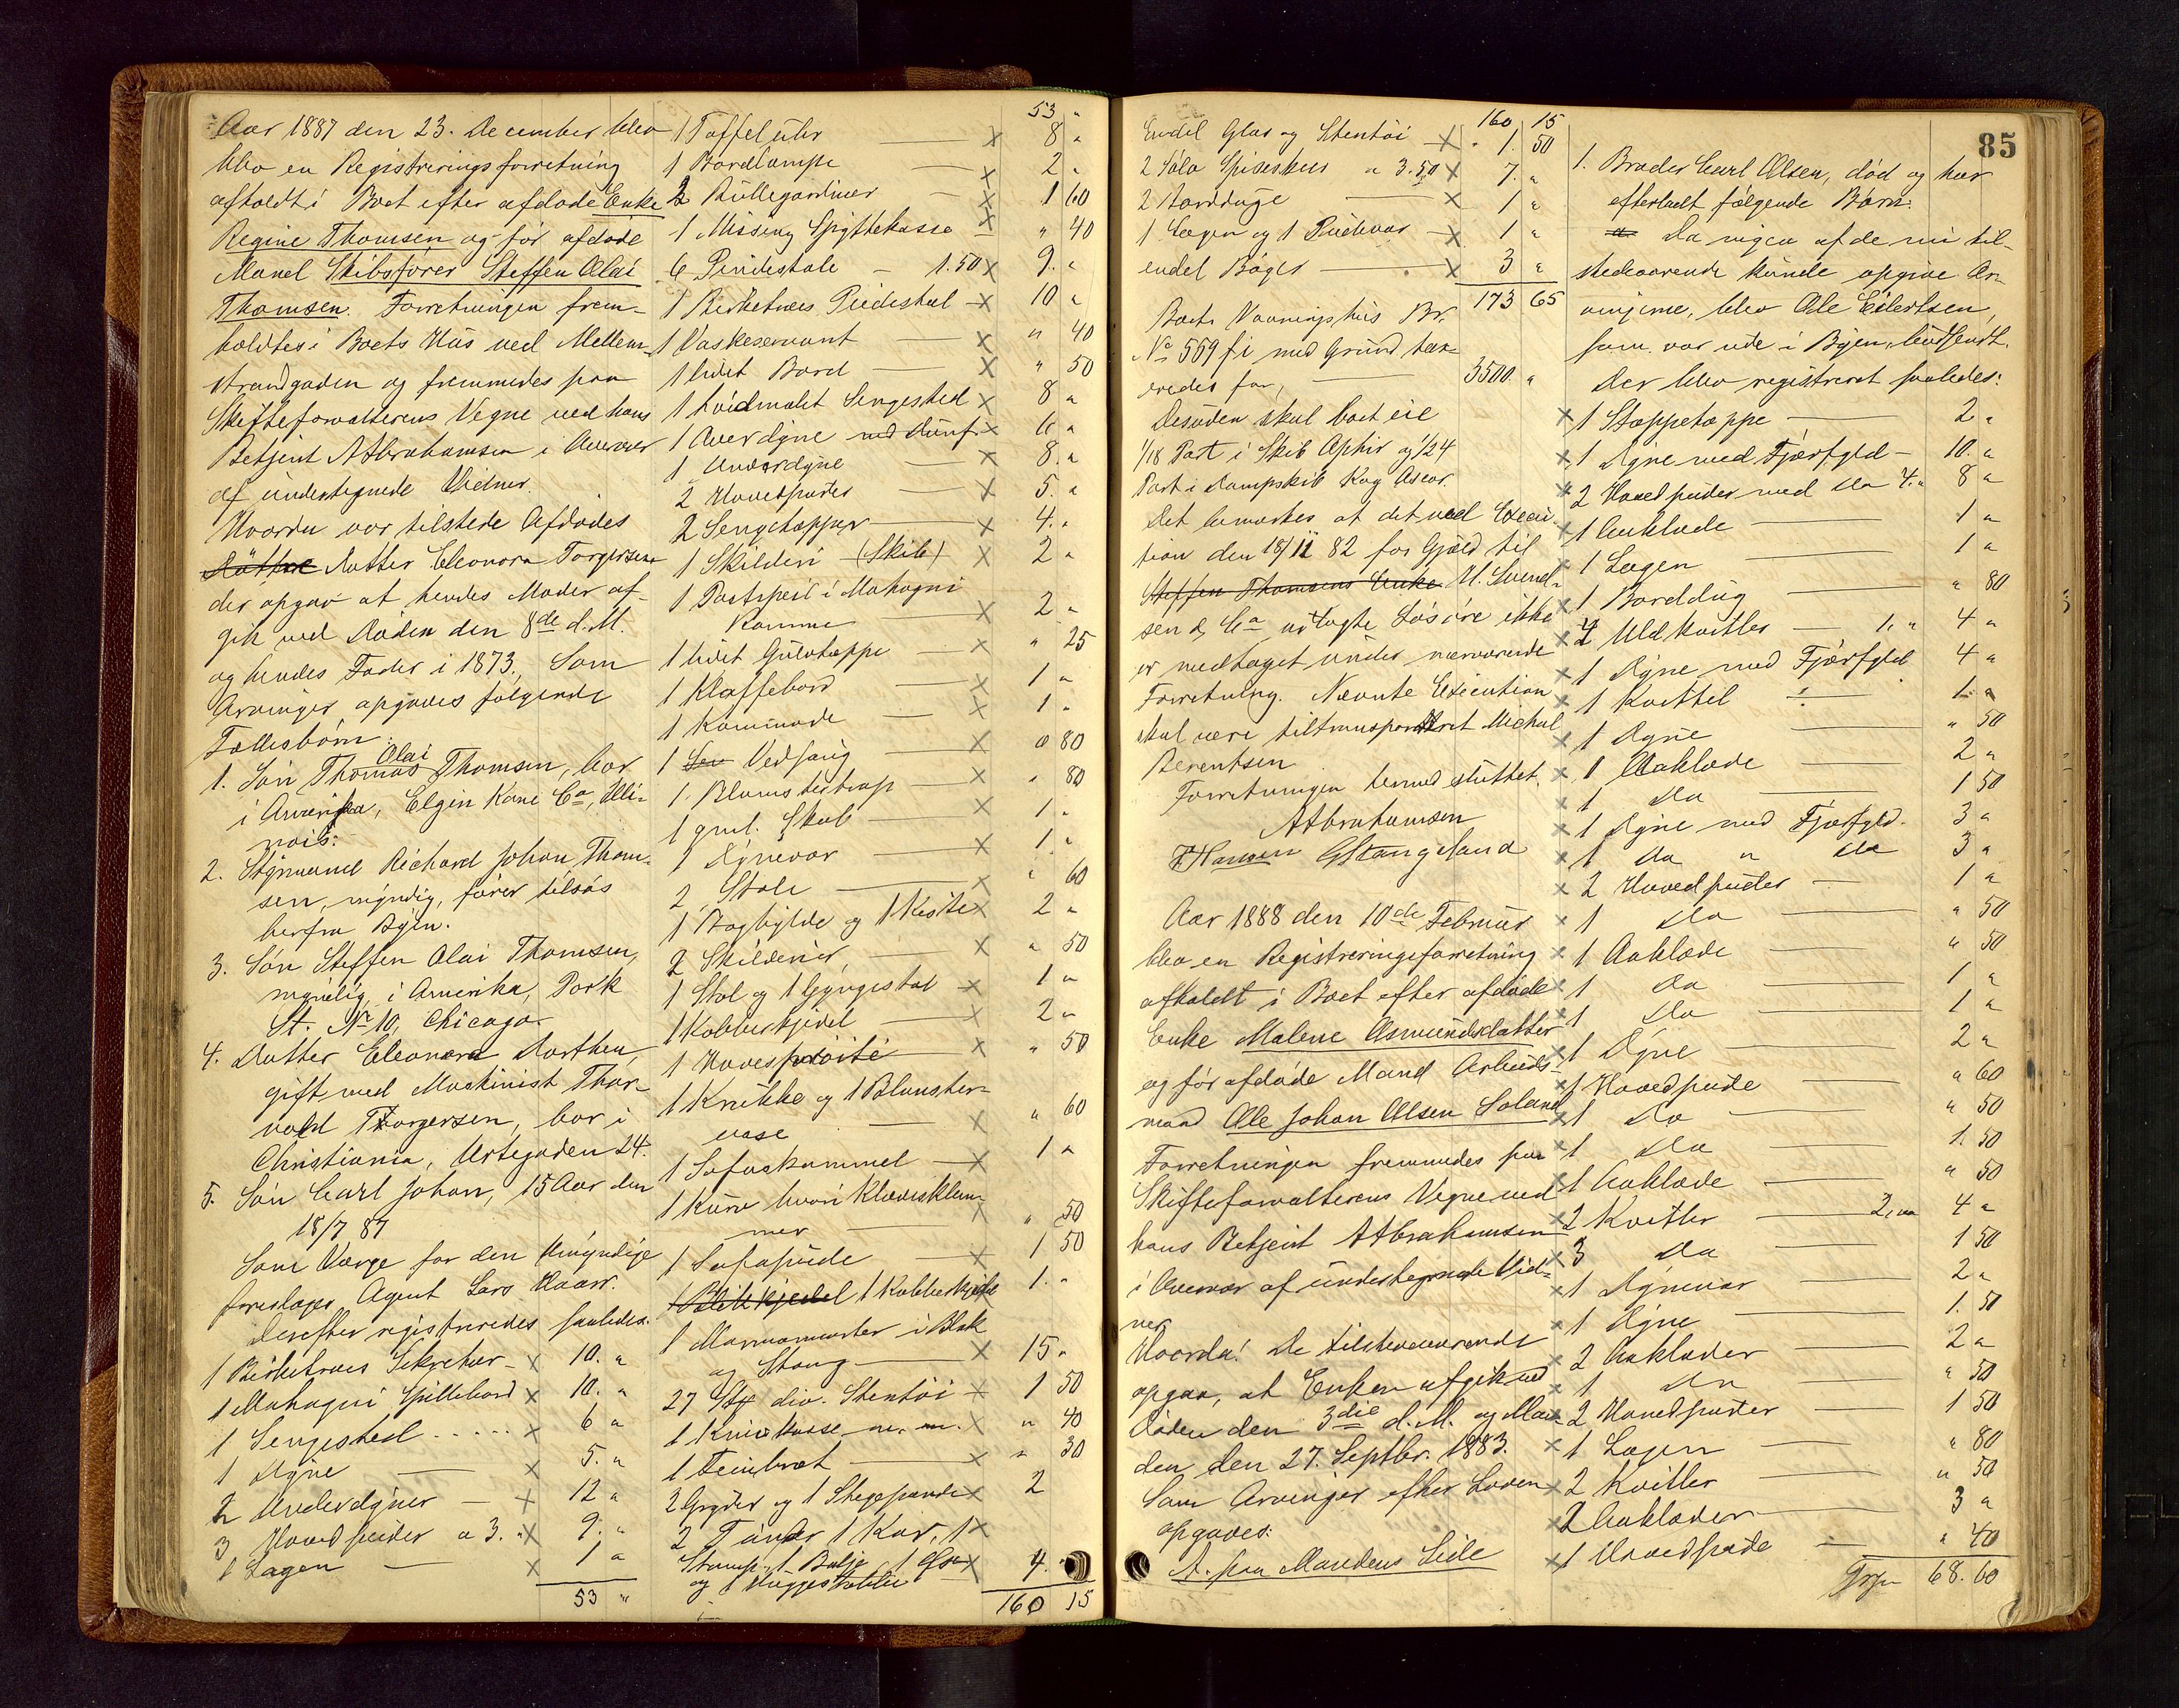 Aar 1887 den 23. December blev
blev en Registreringsforretning
afholdt i Boet efter afdøde Enke
Regine Thomsen og før afdøde
Mand Skibsfører Steffen Olai
Thomsen. Forretningen frem-
holdtes i Boets Hus ved Mellem-
strandgaden og fremmedes paa
Skifteforvalterens Vegne ved hans
Betjent A Abrahamsen i Overvær
af undertegnede Vidner.
Hvorda var tilstede Afdødes
Datter Eleonora Torgersen
der opgav at hendes Moder af-
gik ved Døden den 8de d.M.
og hendes Fader i 1873. Som
Arvinger opgaves følgende
Fællesbørn:
1. Søn Thomas Olai Thomsen, bor
i Amerika, Elgin Kane Co, Illi-
nois.
2. Sigmund Richard Johan Thom-
sen, myndig, farer tilsøs
herfra Byen.
3. Søn Steffen Olai Thomsen,
myndig, i Amerika, Park
St. No 10, Chicago.
4. Datter Eleonora Dorthea,
gift med Maskinist Thor-
vald Torgersen, bor i
Christiania, Urtegaden 24.
5. Søn Carl Johan, 15 Aar den
18/7 87
Som Værge for den Umyndige
foreslages Agent Lars Haaer.
Derefter registreredes saaledes.
1 Birketræes Sekretær - x 10. "
1 Mahogni Spillebord x 10. "
1 Sengested ..... x 6 "
1 Dyne — x 5. "
2 Underdyner — x 12 "
3 Hovedpuder a 3. " x 9. "
1 Lagen — x 1 "
53 "
53 "
1 Taffeluhr — x 8 "
1 Bordlampe x 2 "
2 Rullegardiner — x 1 60
1 Messing Spyttekasse — x " 40
6 Pindestole — 1.50 x 9. "
1 Birketræes Pidestal — x 10 "
1 Vaskeservant — x " 40
1 lidet Bord — x " 50
1 hvidmalet Sengested x 8 "
1 Overdyne med Dunf. x 6 "
1 Underdyne — x 8. "
2 Hovedpuder — x 5. "
2 Sengetæpper — x 4. "
1 Skilderi (Skib) x 2 "
1 Portspeil i Mahogni
Ramme — x 2 "
1 lidet Gulvtæppe — x " 25
1 Klaffebord — x 1 "
1 Kommode — x 1 "
1 Vedsaug — x " 80
1. Blomstertrap — x " 80
1 gml. Skab — x 1 "
1 Dynevar — x 1 "
2 Stole — x " 60
1 Boghylde og 1 Kiste x 2 "
2 Skilderier — x " 50
1 Stol og 1 Gyngestol — x 1 "
1 Kobberkjedel — x 2 "
1 Hovedpude — x " 50
1 Krukke og 1 Blomster-
vase — x " 60
1 Sofaskammel — x 1 "
1 Kurv hvori Klædesklem-
mer — x " 50
1 Sofapude — x 1 50
1 Blikkjedel 1 Kobberkjedel 1. "
1 Marsmester i Blok
og Stang — x 15 "
27 Stk div. Stentøi — x 1 50
1 Knivkasse m. m. x " 40
1 Teinbrat — x " 30
2 Gryder og 1 Stegepande x 2
2 Tønder 1 Kar, 1 x
Stamp, 1 Balje, x 4. "
og 1 Huggestabbe
160 15
85
160 15
Endel Glas og Stentøi — x " 1. 50
2 Sølv Spiseskeer a 3.50 x 7. "
2 Bordduge — x 1 "
1 Lagen og 1 Pudevar — x 1 "
endel Bøger — x 3 "
173 65
Boets Vaaningshus Br.
No 569 fi med Grund tax-
eredes for, — 3500. "
Desuden skal boet eie
1/18 Part i Skib Ophir og 1/24
Part i Dampskib Kong Oscar.
Det bemærkes at det ved Execu-
tion den 18/11 82 for Gjæld til
Steffen Thomsens Enke H. Svend-
sen & Co udlagte Løsøre ikke
er medtaget under nærværende
Forretning. Nævnte Execution
skal være tiltransporteret Michal
Berentsen
Forretningen hermed sluttet.
A Abrahamsen
Hansen G Stangeland
Aar 1888 den 10de Februar
blev en Registreringsforretning
afholdt i Boet efter afdøde
Enke Malene Asmundsdatter
og før afdøde Mand Arbeids-
mand Ole Johan Olsen Soland
Forretningen fremmedes paa
Skifteforvalterens Vegne ved
hans Betjent A Abrahamsen
i Overvær af undertegnede Vid-
ner
Hvorda: De tilstedeværende
opgav, at Enken afgik ved
Døden den 3die d.M. og Man-
den den 27. Septbr. 1883.
Som Arvinger efter Loven
opgaves:
A. paa Mandens Side
1. Broder Carl Olsen, død og har
efterladt følgende Børn:
Da ingen af de nu til-
stedeværende kunde opgive Ar-
vingerne, blev Ole Eilertsen,
som var ude i Byen, budsendt.
Der blev registreret saaledes:
x 1 Stoppetæppe — 2 "
x 1 Dyne med Fjærfyld — 10. "
x 2 Hovedpuder med Do 4. " 8 "
x 1 Aaklæde — 1 "
x 1 Lagen — 1 "
x 1 Borddug — " 80
x 4 Uld Kvitler — 1. " 4 "
x 1 Dyne med Fjærfyld 4 "
x 1 Kvittel — 1. "
x 1 Dyne — " 50
x 1 Aaklæde — 2 "
x 1 Do — 1 50
x 1 Dyne med Fjærfyld. 3 "
x 1 Do " Do 3 "
x 2 Hovedpuder — 1 "
x 1 Do — " 50
x 1 Aaklæde — " 50
x 1 Do — 1 "
x 1 Do — 1 "
x 1 Dyne — 2 "
x 1 Hovedpude — " 60
x 1 Do — " 50
x 1 Do — 1. 50
x 1 Aaklæde — " 50
x 2 Kvitler — 2, " 4 "
x 3 Do — 1 50
x 1 Dynevar — 2 "
x 1 Dyne — 1. 50
x 2 Aaklæder — 2 "
x 1 Do — " 50
x 2 Hovedpuder — 1 50
x 1 Lagen — " 80
x 2 Kvitler — " 50
x 2 Aaklæder — 3 "
x 1 Hovedpude — " 40
68. 60